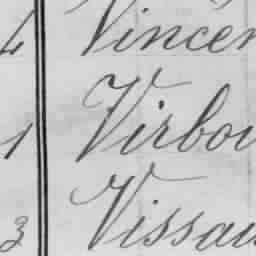 4 Vincen
1 Virbou
3 Vissau